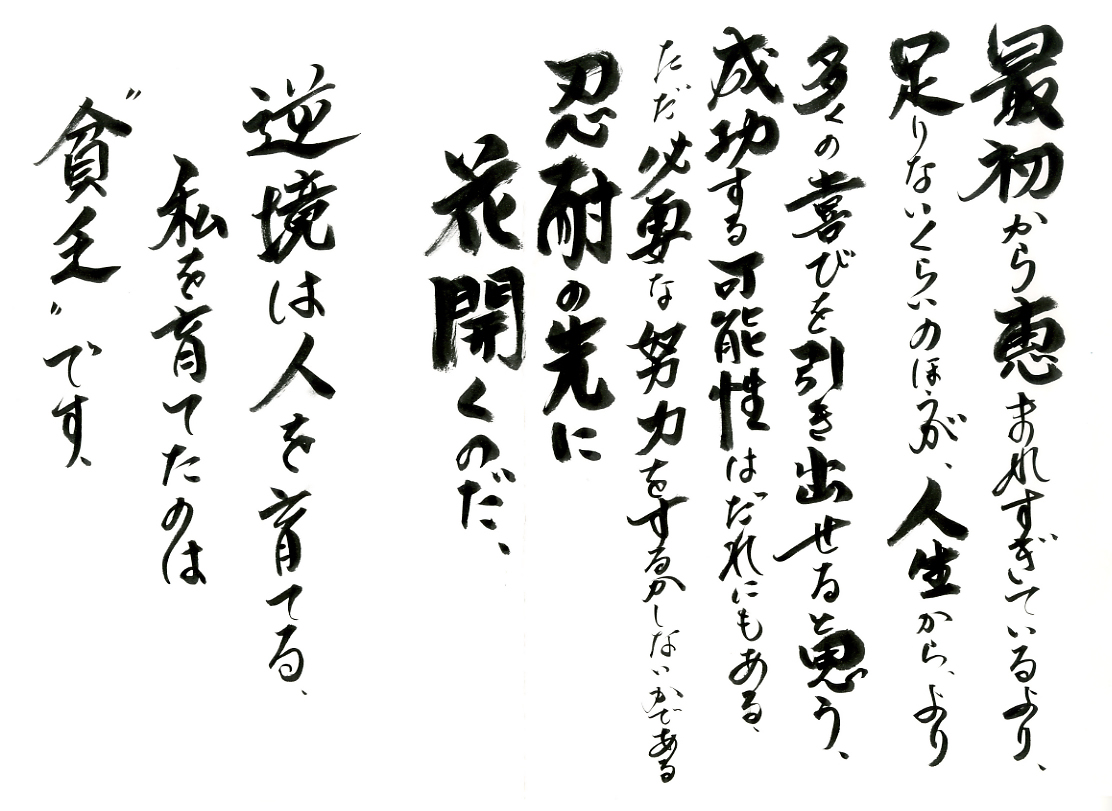 最初から恵まれすぎているより、
足りないくらいのほうが、人生から、より
多くの喜びを引き出せると思う、
成功する可能性はだれにもある、
ただ必要な努力をするかしないかである
忍耐の先に
花開くのだ、
逆境は人を育てる、
私を育てたのは
〝貧乏〟です、